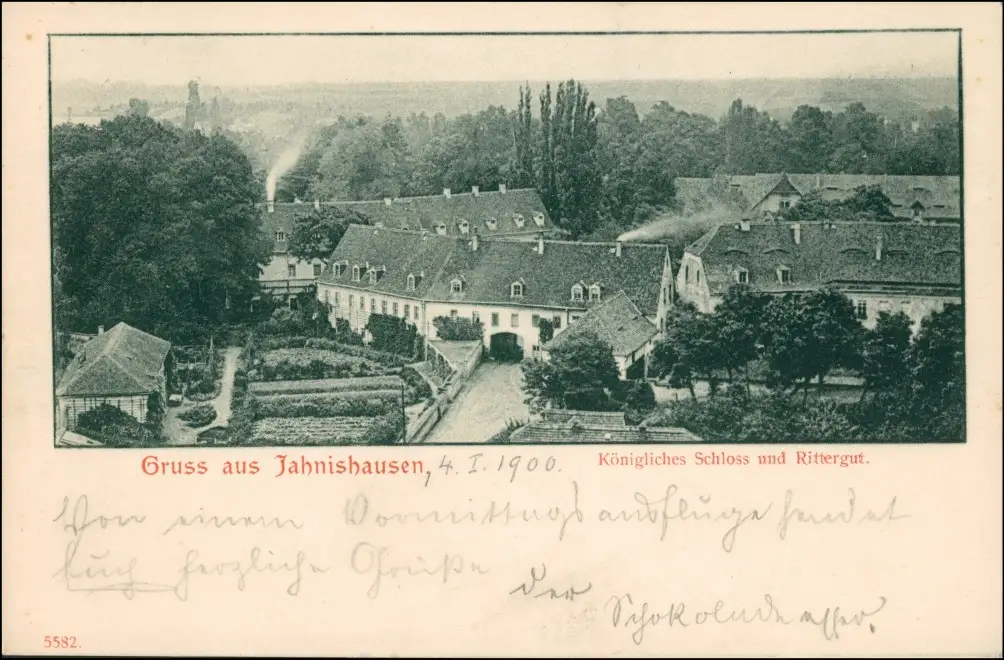 Gruss aus Jahnishausen, 4. I. 1900.
Königliches Schloss und Rittergut.
Von einem Vormittagsausfluge sendet
Euch herzliche Grüße
der Schokoladenesser.
5582.